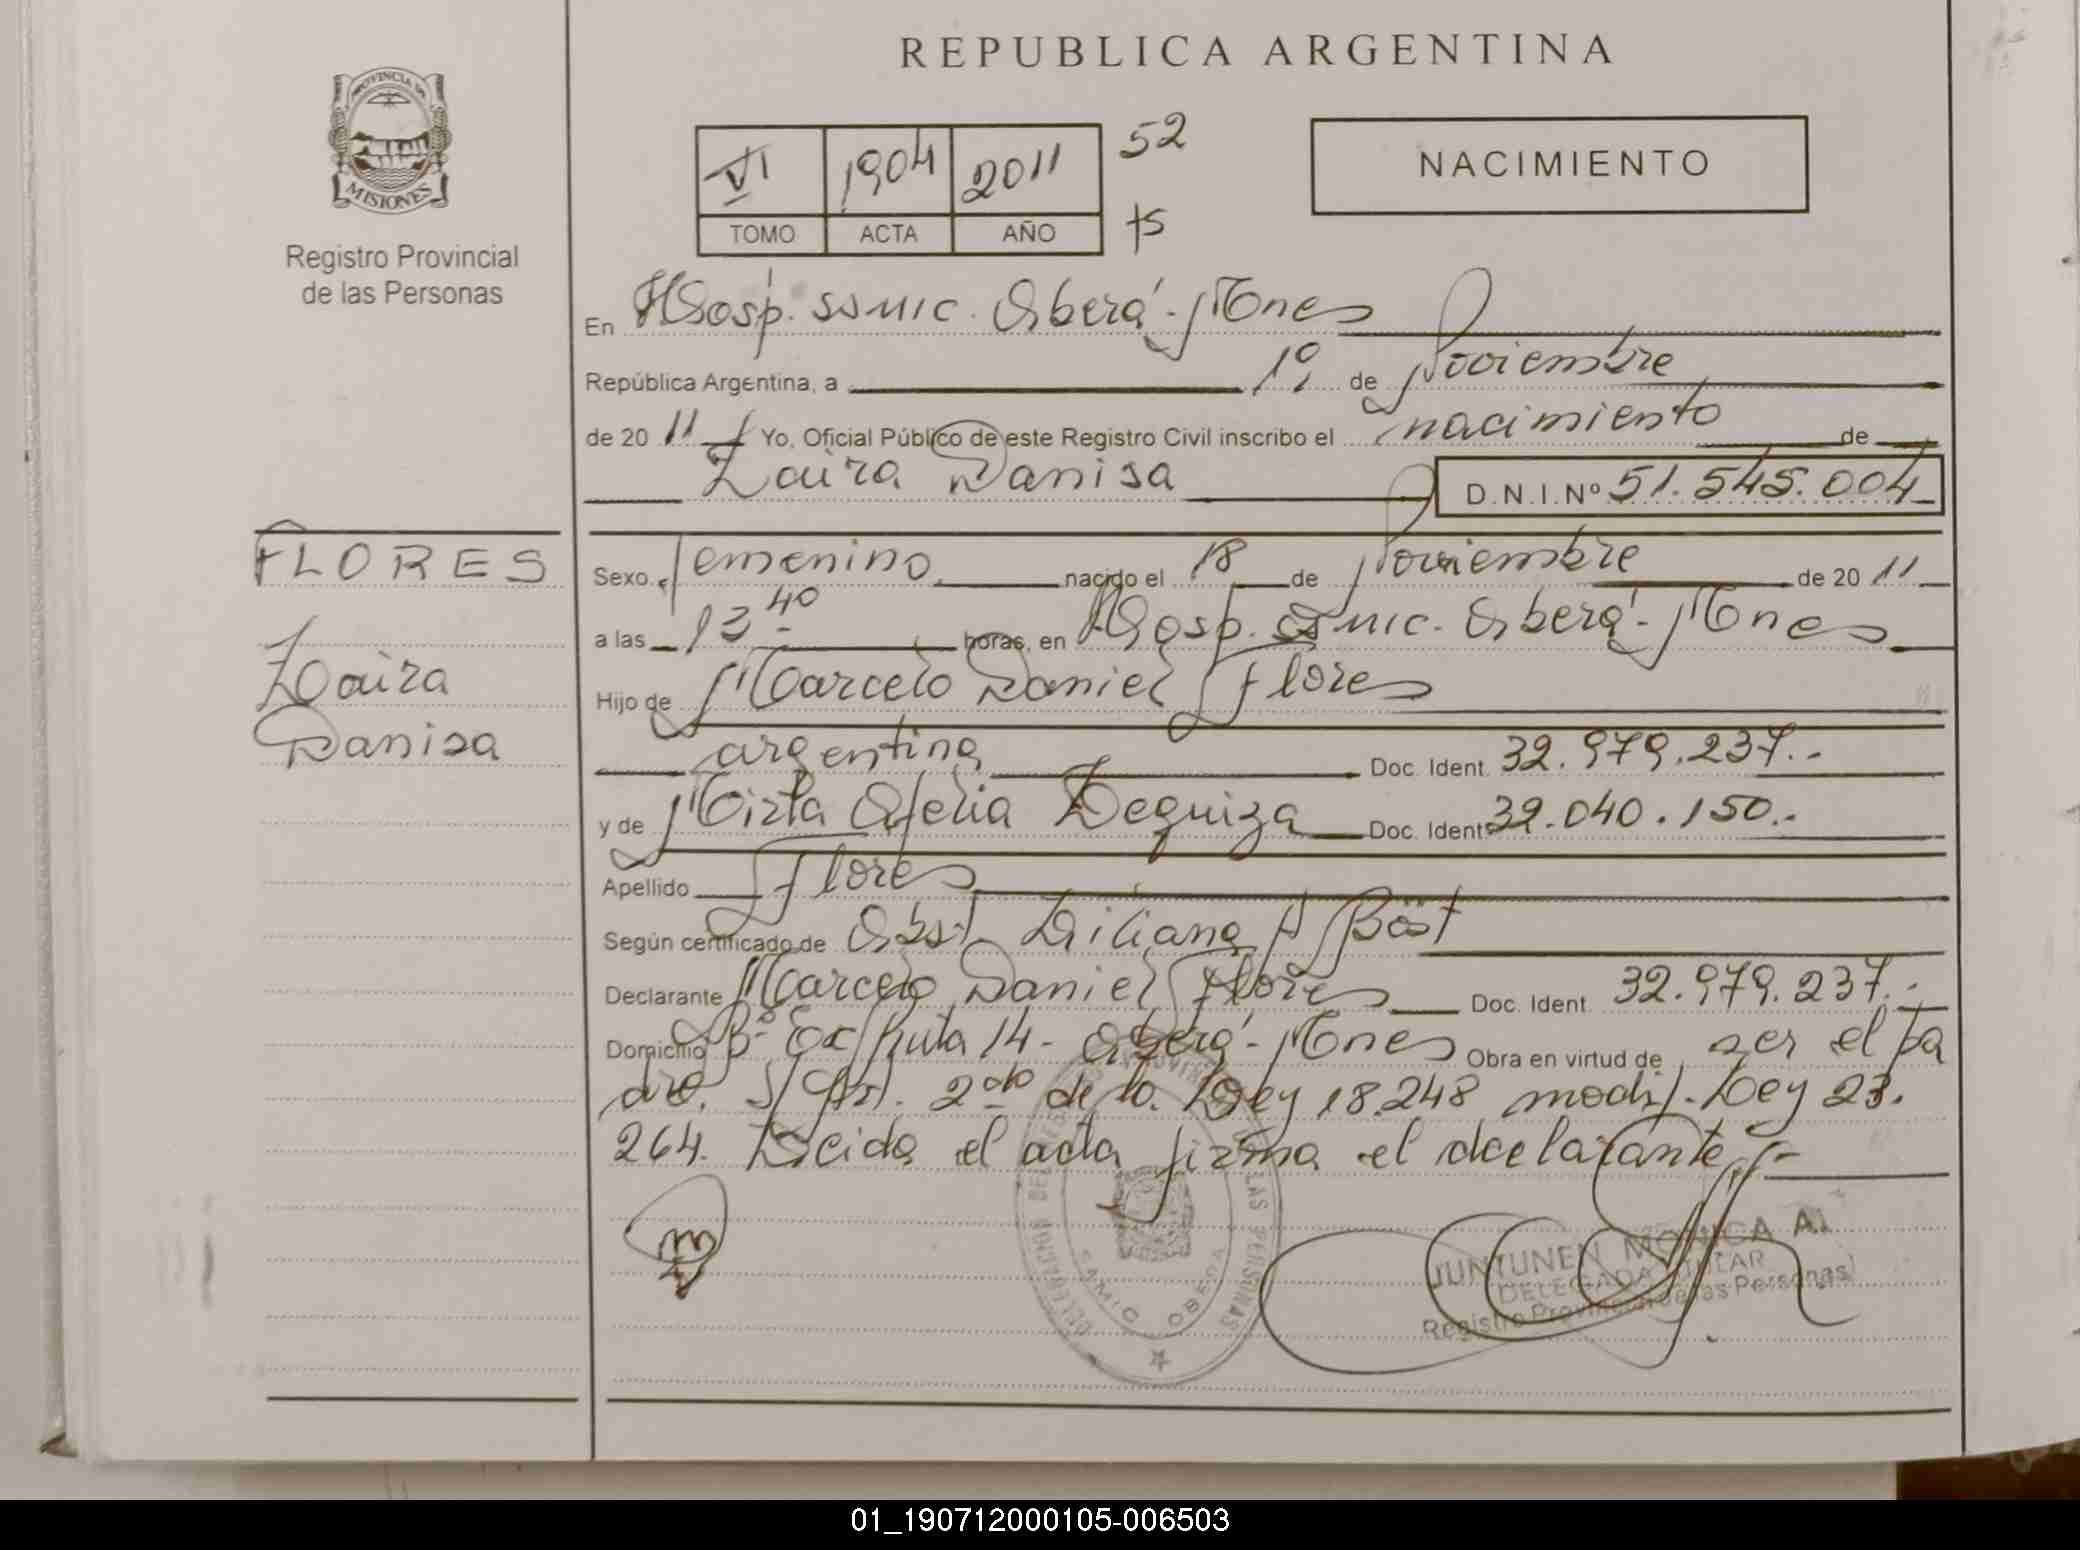 REPUBLICA ARGENTINA
PROVINCIA DE
MISIONES
Registro Provincial
de las Personas
VI 1904 2011 52
TOMO ACTA AÑO
NACIMIENTO
En Hosp. Oberá - Mnes
República Argentina, a 19 de Noviembre
de 20 11 Yo, Oficial Público de este Registro Civil inscribo el nacimiento de
Zaira Danisa D.N.I.Nº 51.545.004
FLORES
Zaira
Danisa
Sexo femenino nacido el 18 de Noviembre de 20 11
a las 13 40 horas, en Hosp. Oberá - Mnes
Hijo de Marcelo Daniel Flores
argentina Doc. Ident. 32.979.237.-
y de Mirta Ofelia Dequiza Doc. Ident. 32.040.150.-
Apellido Flores
Según certificado de Obst. Liliana A Bast
Declarante Marcelo Daniel Flores Doc. Ident. 32.979.237.-
Domicilio Bº Ex Ruta 14 - Oberá - Mnes Obra en virtud de ser el pa
dre. S/ Art. 2do de la Ley 18.248 modif. Ley 23.
264. Leida el acta firma el declarante.-
JUNTUNEN MONICA A.
DELEGADA TITULAR
Registro Provincial de las Personas
01_190712000105-006503